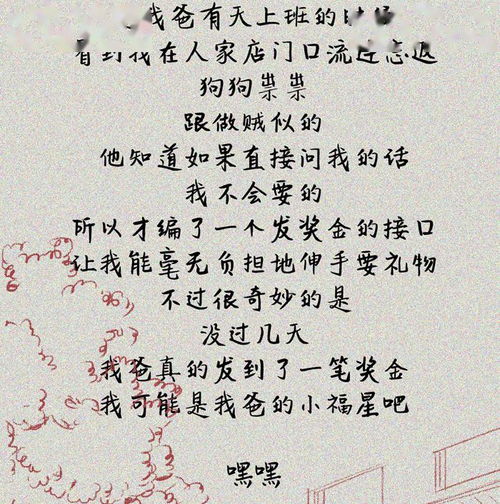 我爸有天上班的时候
看到我在人家店门口流连忘返
狗狗祟祟
跟做贼似的
他知道如果直接问我的话
我不会要的
所以才编了一个发奖金的接口
让我能毫无负担地伸手要礼物
不过很奇妙的是
没过几天
我爸真的发到了一笔奖金
我可能是我爸的小福星吧
嘿嘿